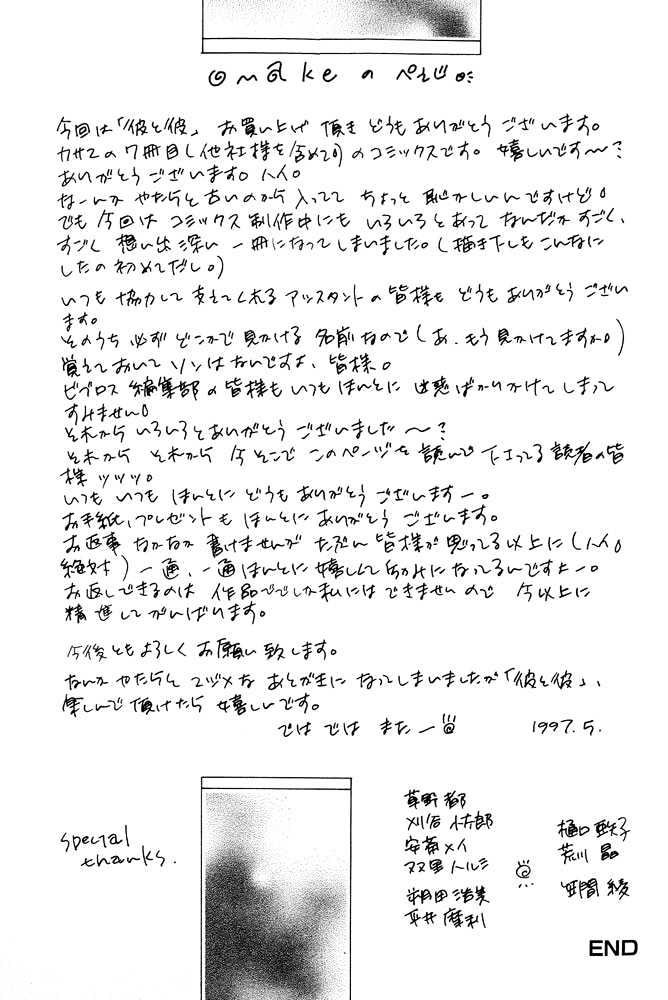 omake のページ
今回は「彼と彼」お買い上げ頂きどうもありがとうございます。
カサマの7冊目(他社様を含めて)のコミックスです。嬉しいです〜?
ありがとうございます。ハイ。
なーんかやたらと古いのから入っててちょっと恥かしいんですけど。
でも今回はコミックス制作中にもいろいろとあってなんだかすごく、
すごく想い出深い一冊になってしまいました。(描き下しもこんなに
したの初めてだし。)
いつも協力して支えてくれるアシスタントの皆様もどうもありがとうござい
ます。
そのうち必ずどこかで見かける名前なので(あ、もう見かけてますか。)
覚えておいてソンはないですよ、皆様。
ビブロス編集部の皆様もいつもほんとに迷惑ばかりかけてしまって
すみません。
それからいろいろとありがとうございました〜?
それから それから 今そこでこのページを読んで下さってる読者の皆
様ッッッ。
いつもいつもほんとにどうもありがとうございますー。
お手紙、プレゼントもほんとにありがとうございます。
お返事なかなか書けませんがたぶん皆様が思ってる以上に(ハイ。
絶対)一通、一通ほんとに嬉しくて励みになってるんですよー。
お返しできるのは作品ででしか私にはできませんので今以上に
精進してがんばります。
今後ともよろしくお願い致します。
なんかやたらとマヅメなあとがきになってしまいましたが「彼と彼」、
楽しんで頂けたら嬉しいです。
ではではまたー 1997.5.
special
thanks.
草野 都
刈谷 小太郎
安斎 メイ
双里 ハルミ
朔田 浩美
平井 摩利
樋口 亜矢子
荒川 晶
笠間 綾
END